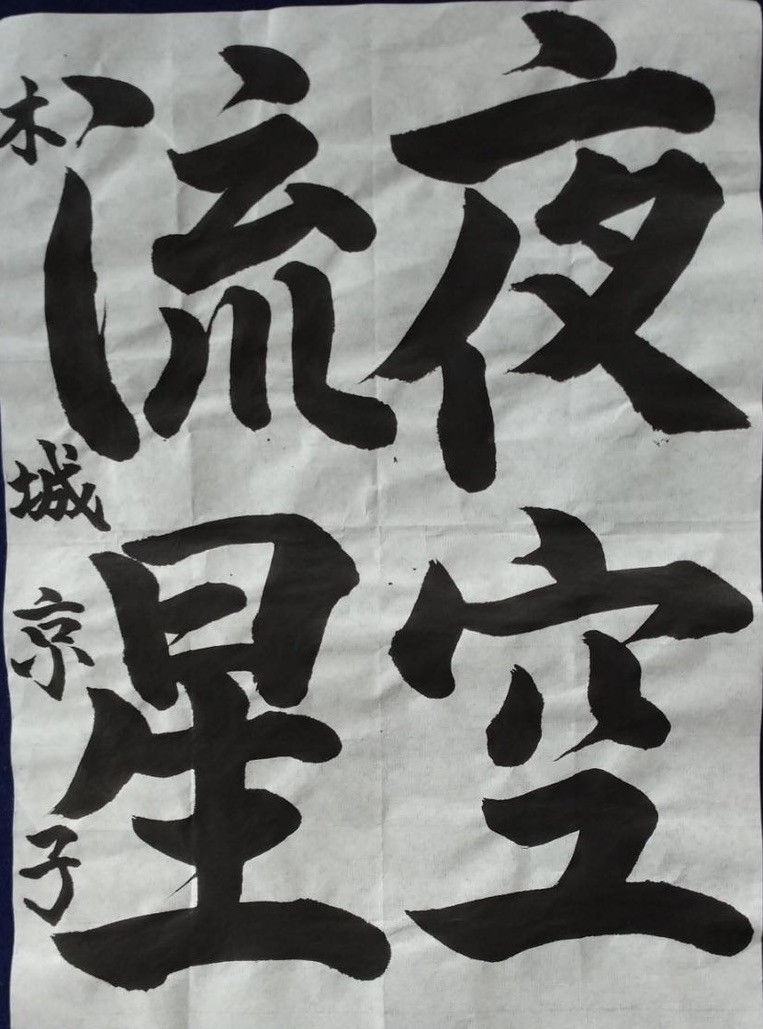 夜空
流星
木城京子